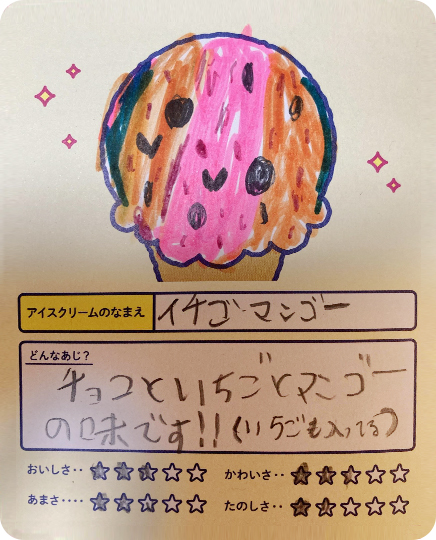 アイスクリームのなまえ イチゴマンゴー
どんなあじ?
チョコといちごとマンゴー
の味です!!(いちごも入ってる)
おいしさ‥ ★★★☆☆ かわいさ‥ ★★★☆☆
あまさ‥‥ ★★☆☆☆ たのしさ‥ ★★☆☆☆